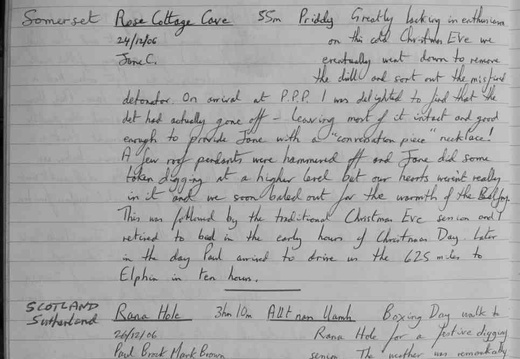 Somerset Rose Cottage Cave 55m Priddy Greatly lacking in enthusiasm
24/12/06 on this cold Christmas Eve we
Jane C. eventually went down to remove
the drill and sort out the misfired
detonator. On arrival at P.P.P. I was delighted to find that the
det had actually gone off - leaving most of it intact and good
enough to provide Jane with a "conversation piece" necklace!
A few roof pendants were hammered off and Jane did some
token digging at a higher level but our hearts weren't really
in it and we soon baled out for the warmth of the
This was followed by the traditional Christmas Eve session and I
retired to bed in the early hours of Christmas Day. Later
in the day Paul arrived to drive us the 625 miles to
Elphin in ten hours.
SCOTLAND Rana Hole 3hr 10m Allt nan Uamh Boxing Day walk to
Sutherland
26/12/06 Rana Hole for a festive digging
Paul Brock, Mark Brown session The weather was remarkably